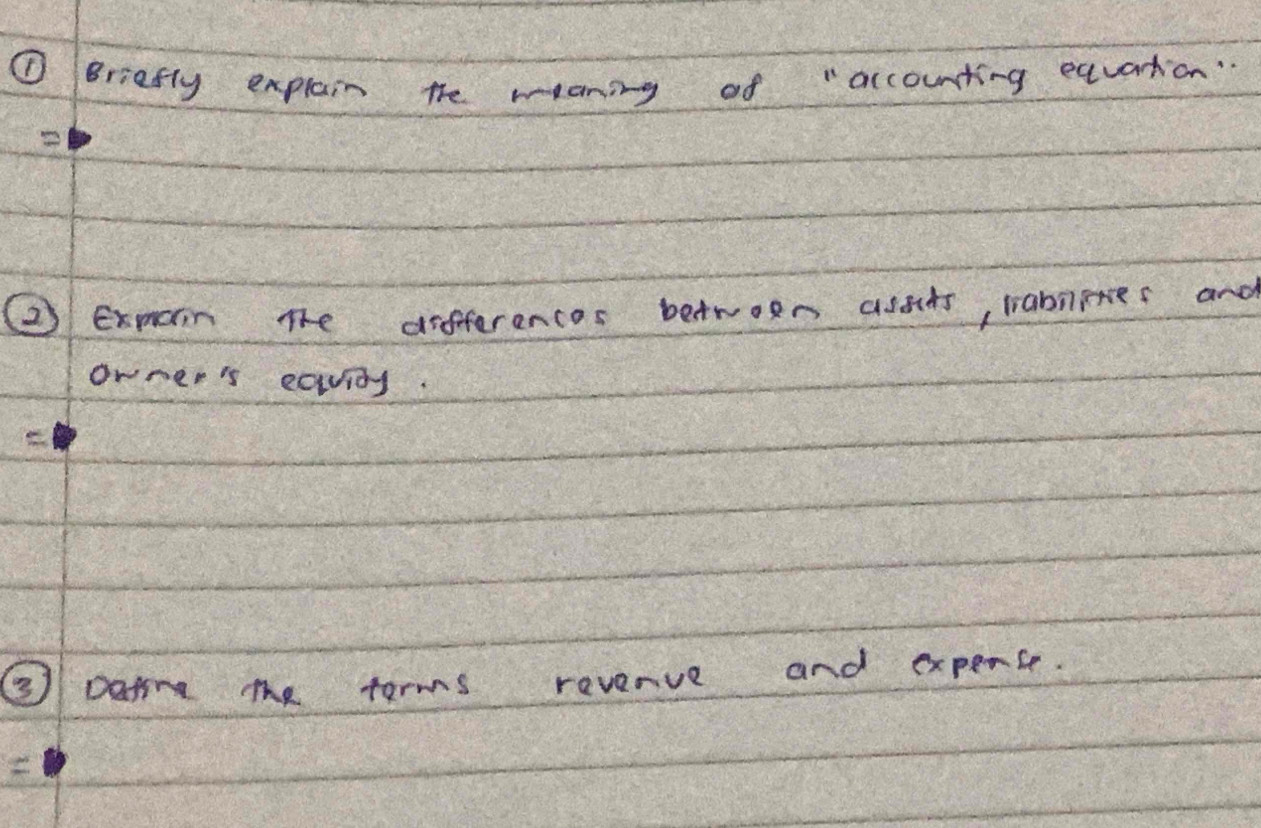 ① Briefly explain the meaning of "accounting equation".
=
② Explain the differences between assets, liabilities and
owner's equity.
=
③ Define the terms revenue and expense.
=